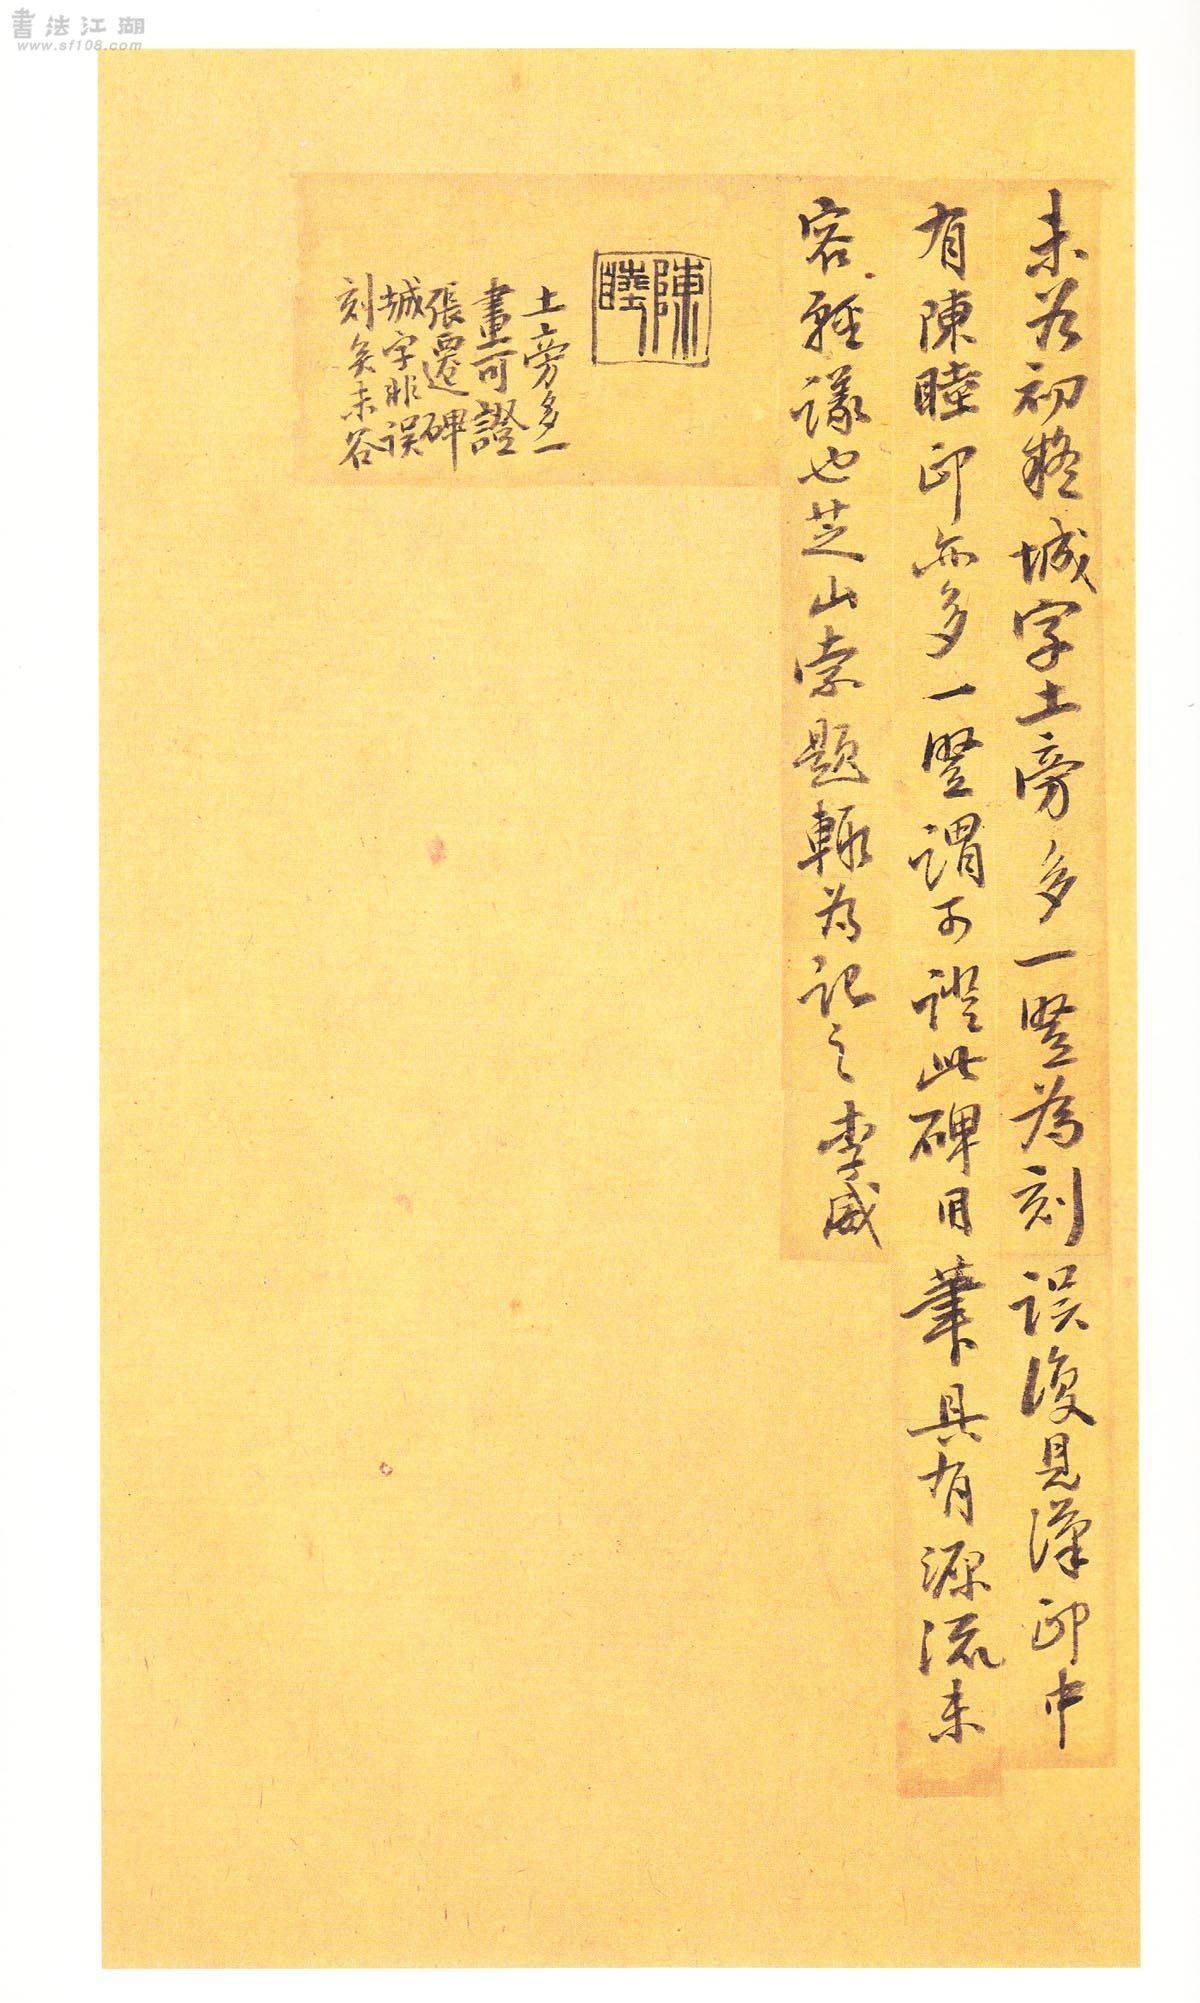 書法江湖
www.sf108.com
未谷初疑城字土旁多一豎為刻誤復見漢印中
有陳睦印亦多一豎謂可證此碑用筆具有源流未
容輕議也芝山索題輒為記之李威
陳睦
土旁多一
畫可證
張遷碑
城字非誤
刻矣未谷